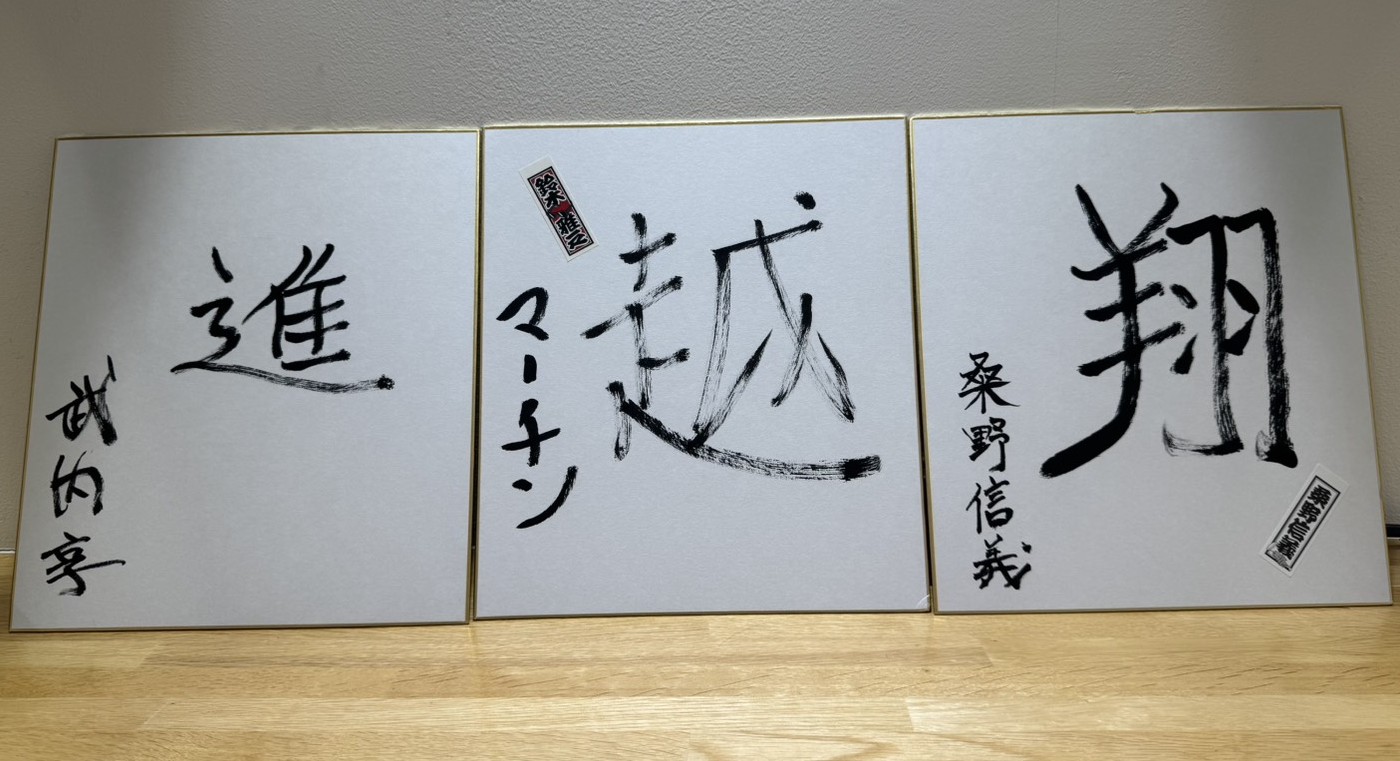 進
武内享
鈴木雅之
越
マーチン
翔
桑野信義
桑野信義